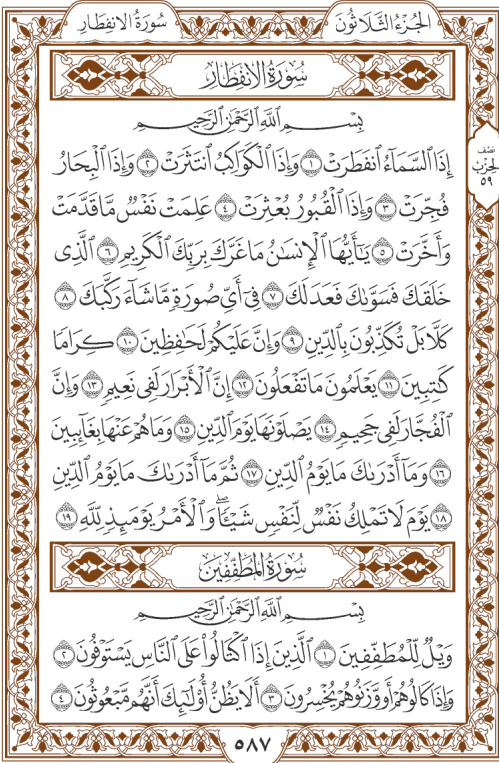 سُورَةُ الانفِطَارِ
الجُزْءُ الثَّلَاثُونَ
سُورَةُ الانفِطَارِ
بِسْمِ ٱللَّهِ ٱلرَّحْمَٰنِ ٱلرَّحِيمِ
إِذَا ٱلسَّمَآءُ ٱنفَطَرَتْ ١ وَإِذَا ٱلْكَوَاكِبُ ٱنتَثَرَتْ ٢ وَإِذَا ٱلْبِحَارُ
فُجِّرَتْ ٣ وَإِذَا ٱلْقُبُورُ بُعْثِرَتْ ٤ عَلِمَتْ نَفْسٌ مَّا قَدَّمَتْ
وَأَخَّرَتْ ٥ يَٰٓأَيُّهَا ٱلْإِنسَٰنُ مَا غَرَّكَ بِرَبِّكَ ٱلْكَرِيمِ ٦ ٱلَّذِى
خَلَقَكَ فَسَوَّىٰكَ فَعَدَلَكَ ٧ فِىٓ أَىِّ صُورَةٍ مَّا شَآءَ رَكَّبَكَ ٨
كَلَّا بَلْ تُكَذِّبُونَ بِٱلدِّينِ ٩ وَإِنَّ عَلَيْكُمْ لَحَٰفِظِينَ ١٠ كِرَامًا
كَٰتِبِينَ ١١ يَعْلَمُونَ مَا تَفْعَلُونَ ١٢ إِنَّ ٱلْأَبْرَارَ لَفِى نَعِيمٍ ١٣ وَإِنَّ
ٱلْفُجَّارَ لَفِى جَحِيمٍ ١٤ يَصْلَوْنَهَا يَوْمَ ٱلدِّينِ ١٥ وَمَا هُمْ عَنْهَا بِغَآئِبِينَ
١٦ وَمَآ أَدْرَىٰكَ مَا يَوْمُ ٱلدِّينِ ١٧ ثُمَّ مَآ أَدْرَىٰكَ مَا يَوْمُ ٱلدِّينِ
١٨ يَوْمَ لَا تَمْلِكُ نَفْسٌ لِّنَفْسٍ شَيْـًٔا ۖ وَٱلْأَمْرُ يَوْمَئِذٍ لِّلَّهِ ١٩
سُورَةُ المُطَفِّفِينَ
بِسْمِ ٱللَّهِ ٱلرَّحْمَٰنِ ٱلرَّحِيمِ
وَيْلٌ لِّلْمُطَفِّفِينَ ١ ٱلَّذِينَ إِذَا ٱكْتَالُوا۟ عَلَى ٱلنَّاسِ يَسْتَوْفُونَ ٢
وَإِذَا كَالُوهُمْ أَو وَّزَنُوهُمْ يُخْسِرُونَ ٣ أَلَا يَظُنُّ أُو۟لَٰٓئِكَ أَنَّهُم مَّبْعُوثُونَ ٤
نِصْف
الحِزْب
٥٩
٥٨٧